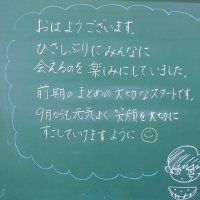 おはようございます。
ひさしぶりにみんなに
会えるのを楽しみにしていました。
前期のまとめの大切なスタートです。
9月からも元気よく笑顔を大切に
すごしていけますように